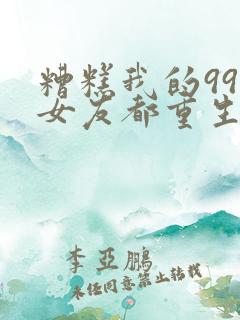 糟糕我的99
女友都重生
李亞鵬
未经同意禁止转载